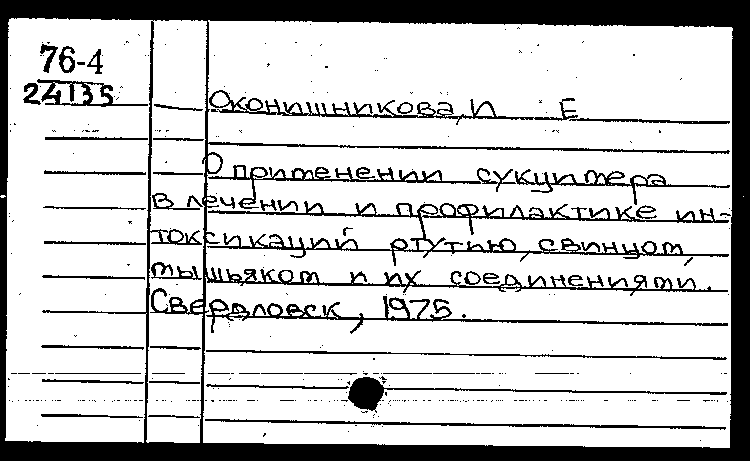 76-4
24135
Оконишникова, И Е
О применении сукцимера
в лечении и профилактике ин-
токсикаций ртутью, свинцом,
мышьяком и их соединениями.
Свердловск, 1975.